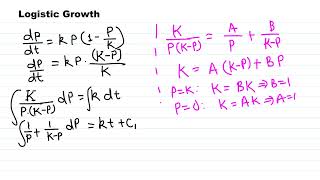 Logistic Growth
dP/dt = kP(1 - P/K)
dP/dt = kP · (K-P)/K
∫ K/(P(K-P)) dP = ∫k dt
∫ 1/P + 1/(K-P) dP = kt + C₁
K/(P(K-P)) = A/P + B/(K-P)
K = A(K-P) + BP
P=K: K = BK ⇒ B=1
P=0: K = AK ⇒ A=1